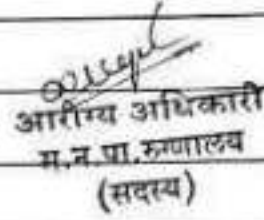 आरोग्य अधिकारी
म.न.पा.रुग्णालय
(सदस्य)